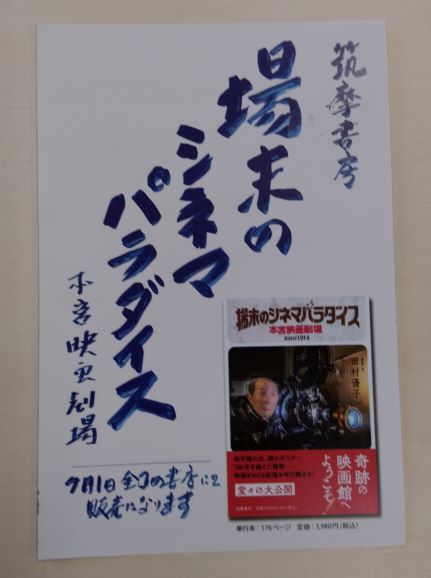 筑摩書房
場末の
シネマ
パラダイス
本宮映画劇場
7月1日全国の書店にて
販売になります
場末のシネマパラダイス
本宮映画劇場
since1914
田村優子
奇跡の
映画館へ
ようこそ!
堂々の大公開
単行本:176ページ 定価:1,980円(税込)